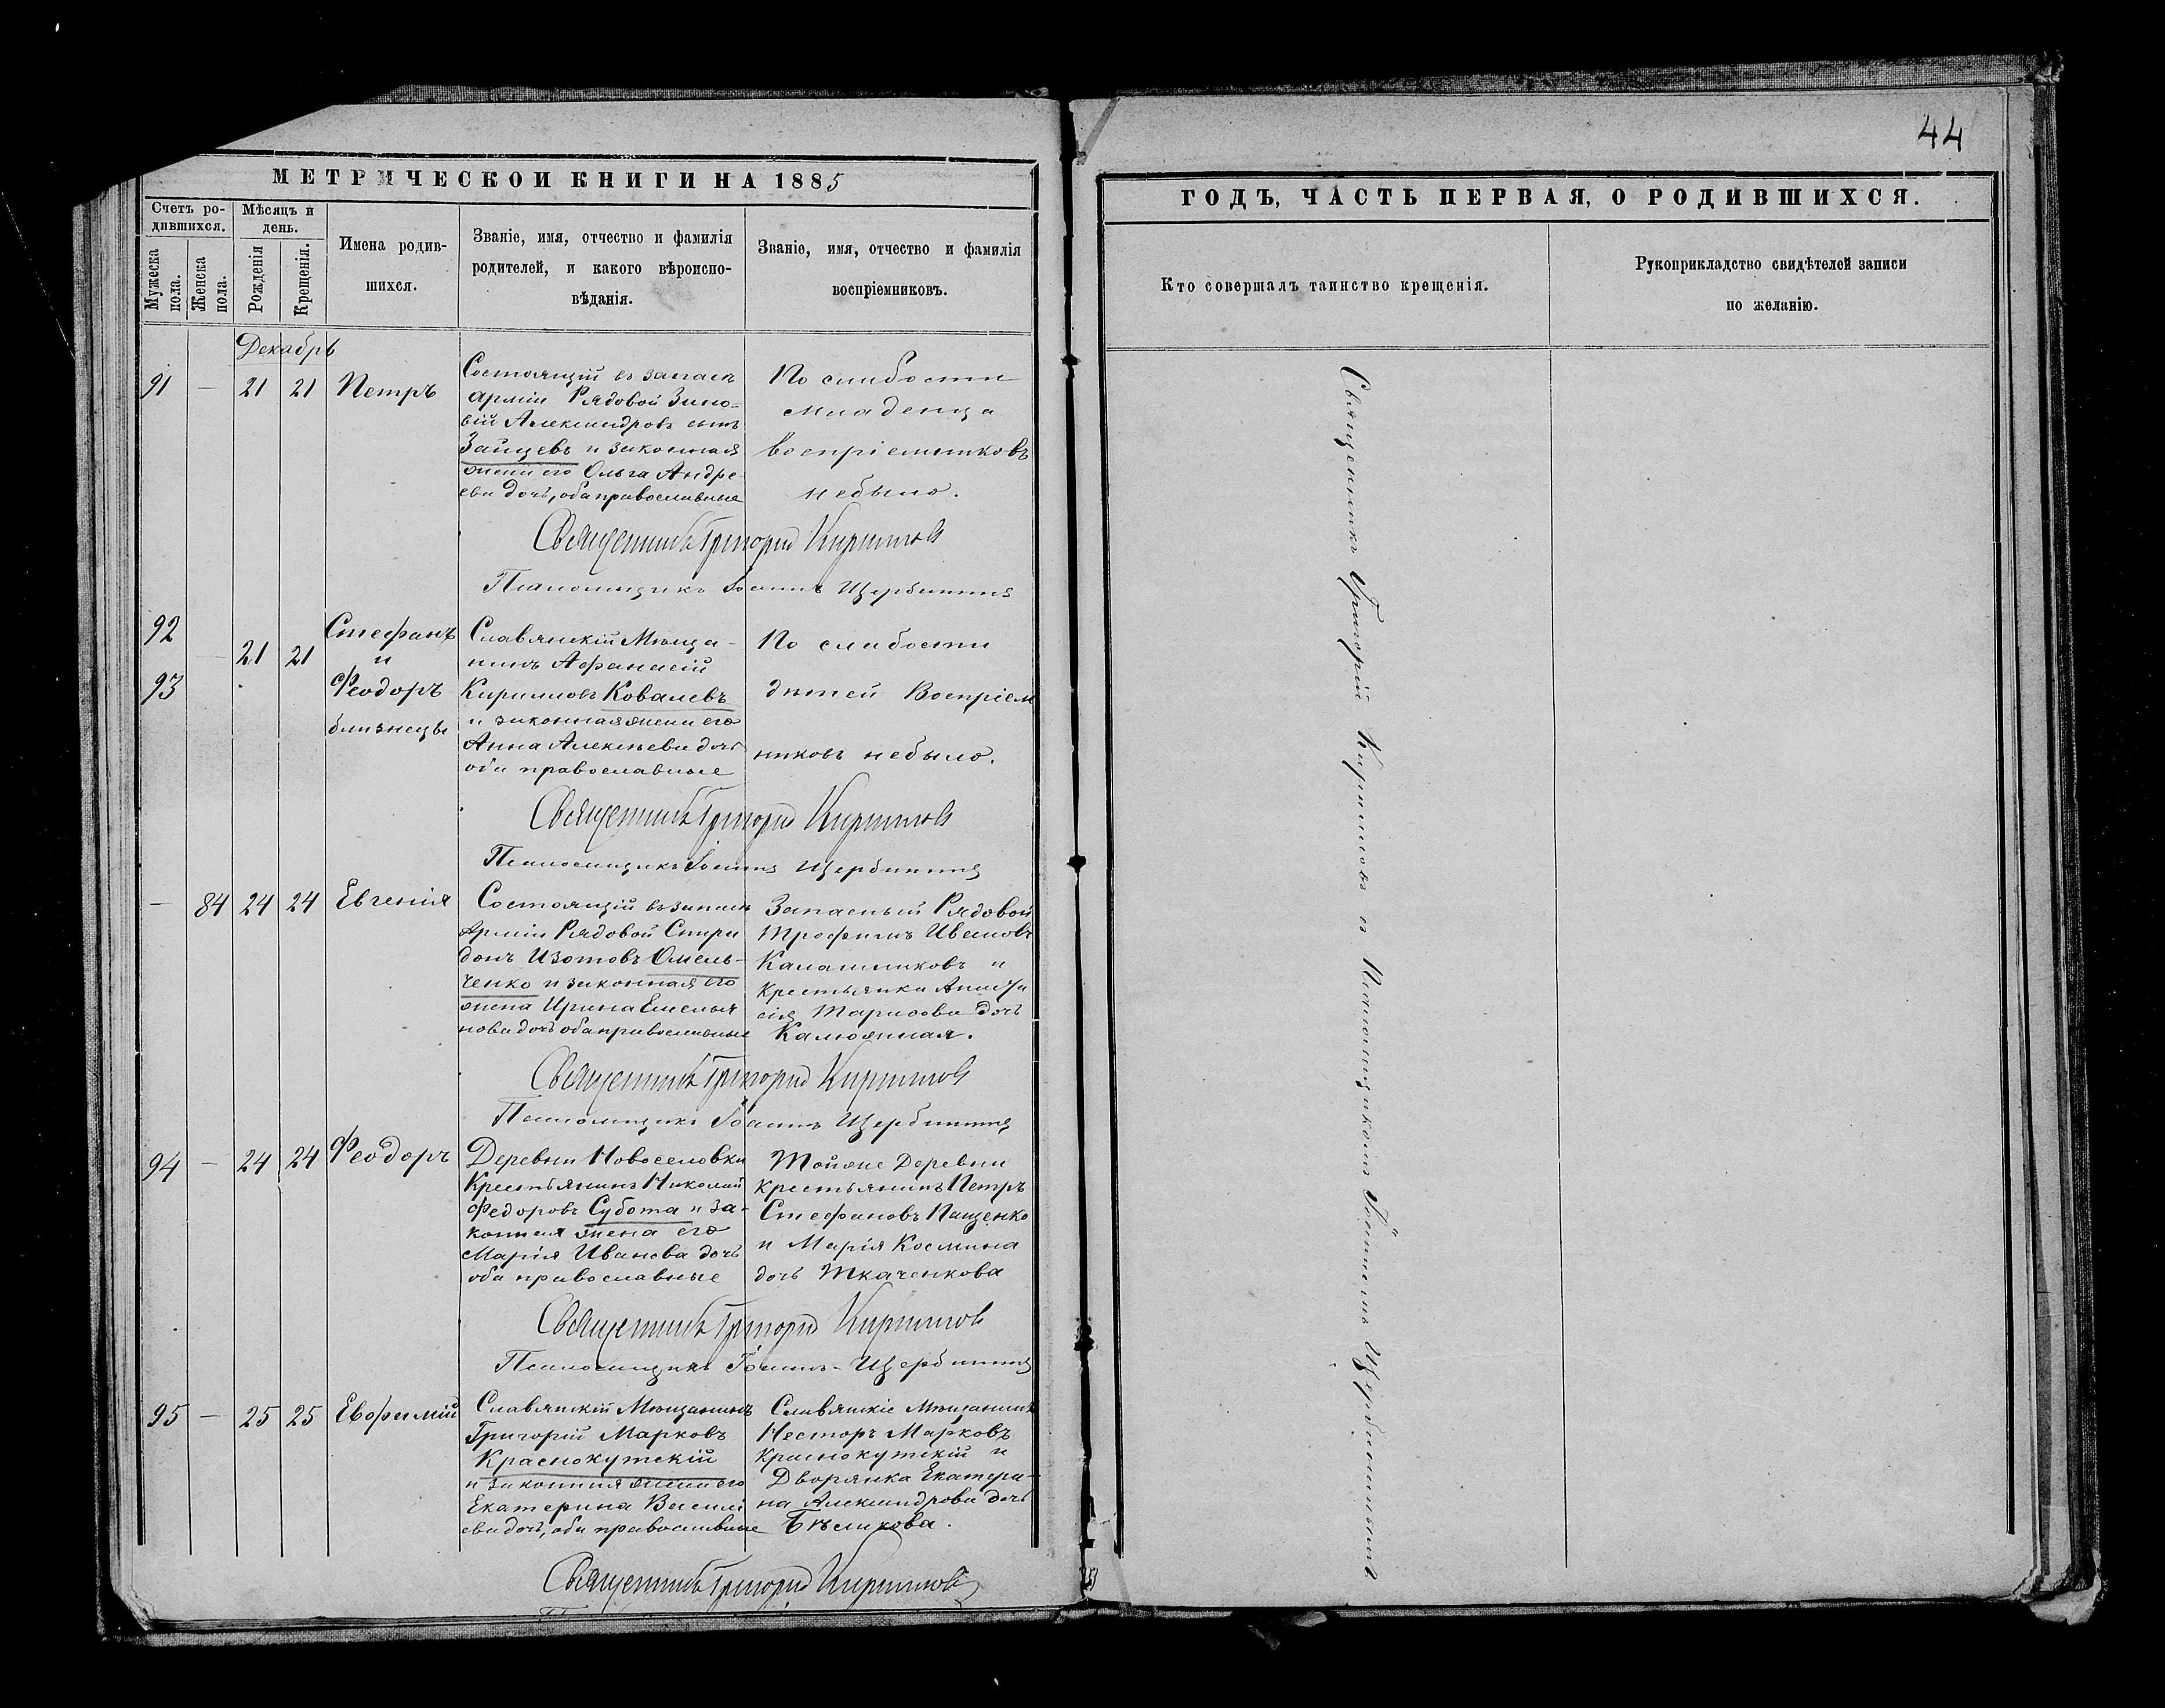 МЕТРИЧЕСКОЙ КНИГИ НА 1885
Счетъ ро-
дившихся.
Мѣсяцъ и
день.
Мужеска
пола.
Женска
пола.
Рожденія
Крещенія.
Имена родив-
шихся.
Званіе, имя, отчество и фамилія
родителей, и какого вѣроиспо-
вѣданія.
Званіе, имя, отчество и фамилія
воспріемниковъ.
Декабрь
91 — 21 21 Петръ
Состоящій въ запасѣ
арміи Рядовой Зино-
вій Александровъ сынъ
Зайцевъ и законная
жена его Ольга Андре
ева дочь, оба православные
По слабости
младенца
воспріемниковъ
небыло.
Священникъ Григорій Кирилловъ
Псаломщикъ Іоаннъ Щербининъ
92
93
— 21 21
Стефанъ
и
Феодоръ
близнецы
Славянскій Мѣща-
нинъ Афанасій
Кирилловъ Ковалевъ
и законная жена его
Анна Алексѣева дочь
оба православные
По слабости
дѣтей Воспріем
никовъ небыло.
Священникъ Григорій Кирилловъ
Псаломщикъ Іоаннъ Щербининъ
— 84 24 24 Евгенія
Состоящій въ запасѣ
Арміи Рядовой Спири
донъ Изотовъ Омель-
ченко и законная его
жена Ирина Емелья
нова дочь оба православные
Запасный Рядовой
Трофимъ Ивановъ
Калашниковъ и
крестьянка Анаста
сія Тарасова дочь
Калюжная.
Священникъ Григорій Кирилловъ
Псаломщикъ Іоаннъ Щербининъ
94 — 24 24 Феодоръ
Деревни Новоселовки
Крестьянинъ Николай
Федоровъ Субота и за-
конная жена его
Марія Иванова дочь
оба православные
Тойже Деревни
крестьянинъ Петръ
Стефановъ Пащенко
и Марія Космина
дочь Ткаченкова
Священникъ Григорій Кирилловъ
Псаломщикъ Іоаннъ Щербининъ
95 — 25 25 Евфимій
Славянскій Мѣщанинъ
Григорій Марковъ
Краснокутскій
и законная жена его
Екатерина Васили
ева дочь, оба православные
Славянскіе Мѣщанинъ
Несторъ Марковъ
Краснокутскій и
Дворянка Екатери-
на Александрова дочь
Бѣликова.
Священникъ Григорій Кирилловъ
44
ГОДЪ, ЧАСТЬ ПЕРВАЯ, О РОДИВШИХСЯ.
Кто совершалъ таинство крещенія.
Рукоприкладство свидѣтелей записи
по желанію.
Священникъ Григорій Кирилловъ съ Псаломщикомъ Іоанномъ Щербининымъ